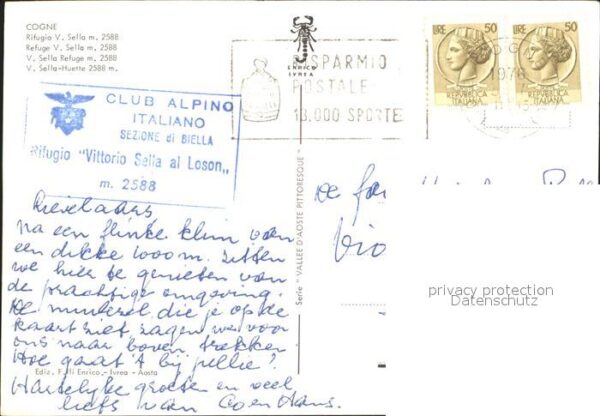 COGNE
Rifugio V. Sella m. 2588
Refuge V. Sella m. 2588
V. Sella Refuge m. 2588
V. Sella-Huette 2588 m.
ENRICO
IVREA
RISPARMIO
POSTALE
13.000 SPORTE
LIRE 50
REPVBBLICA
ITALIANA
LIRE 50
REPVBBLICA
ITALIANA
1976
CLUB ALPINO
ITALIANO
SEZIONE di BIELLA
Rifugio "Vittorio Sella al Loson"
m. 2588
na een flinke klim van
een dikke 1000 m. zitten
we hier te genieten van
de prachtige omgeving.
De muilezel die je op de
kaart ziet zagen we voor
ons naar boven trekken
Hoe gaat 't bij jullie?
Hartelijke groeten en veel
liefs van Coen Hans.
De fa
Serie "VALLEE D'AOSTE PITTORESQUE"
Ediz. F.lli Enrico - Ivrea - Aosta
privacy protection
Datenschutz